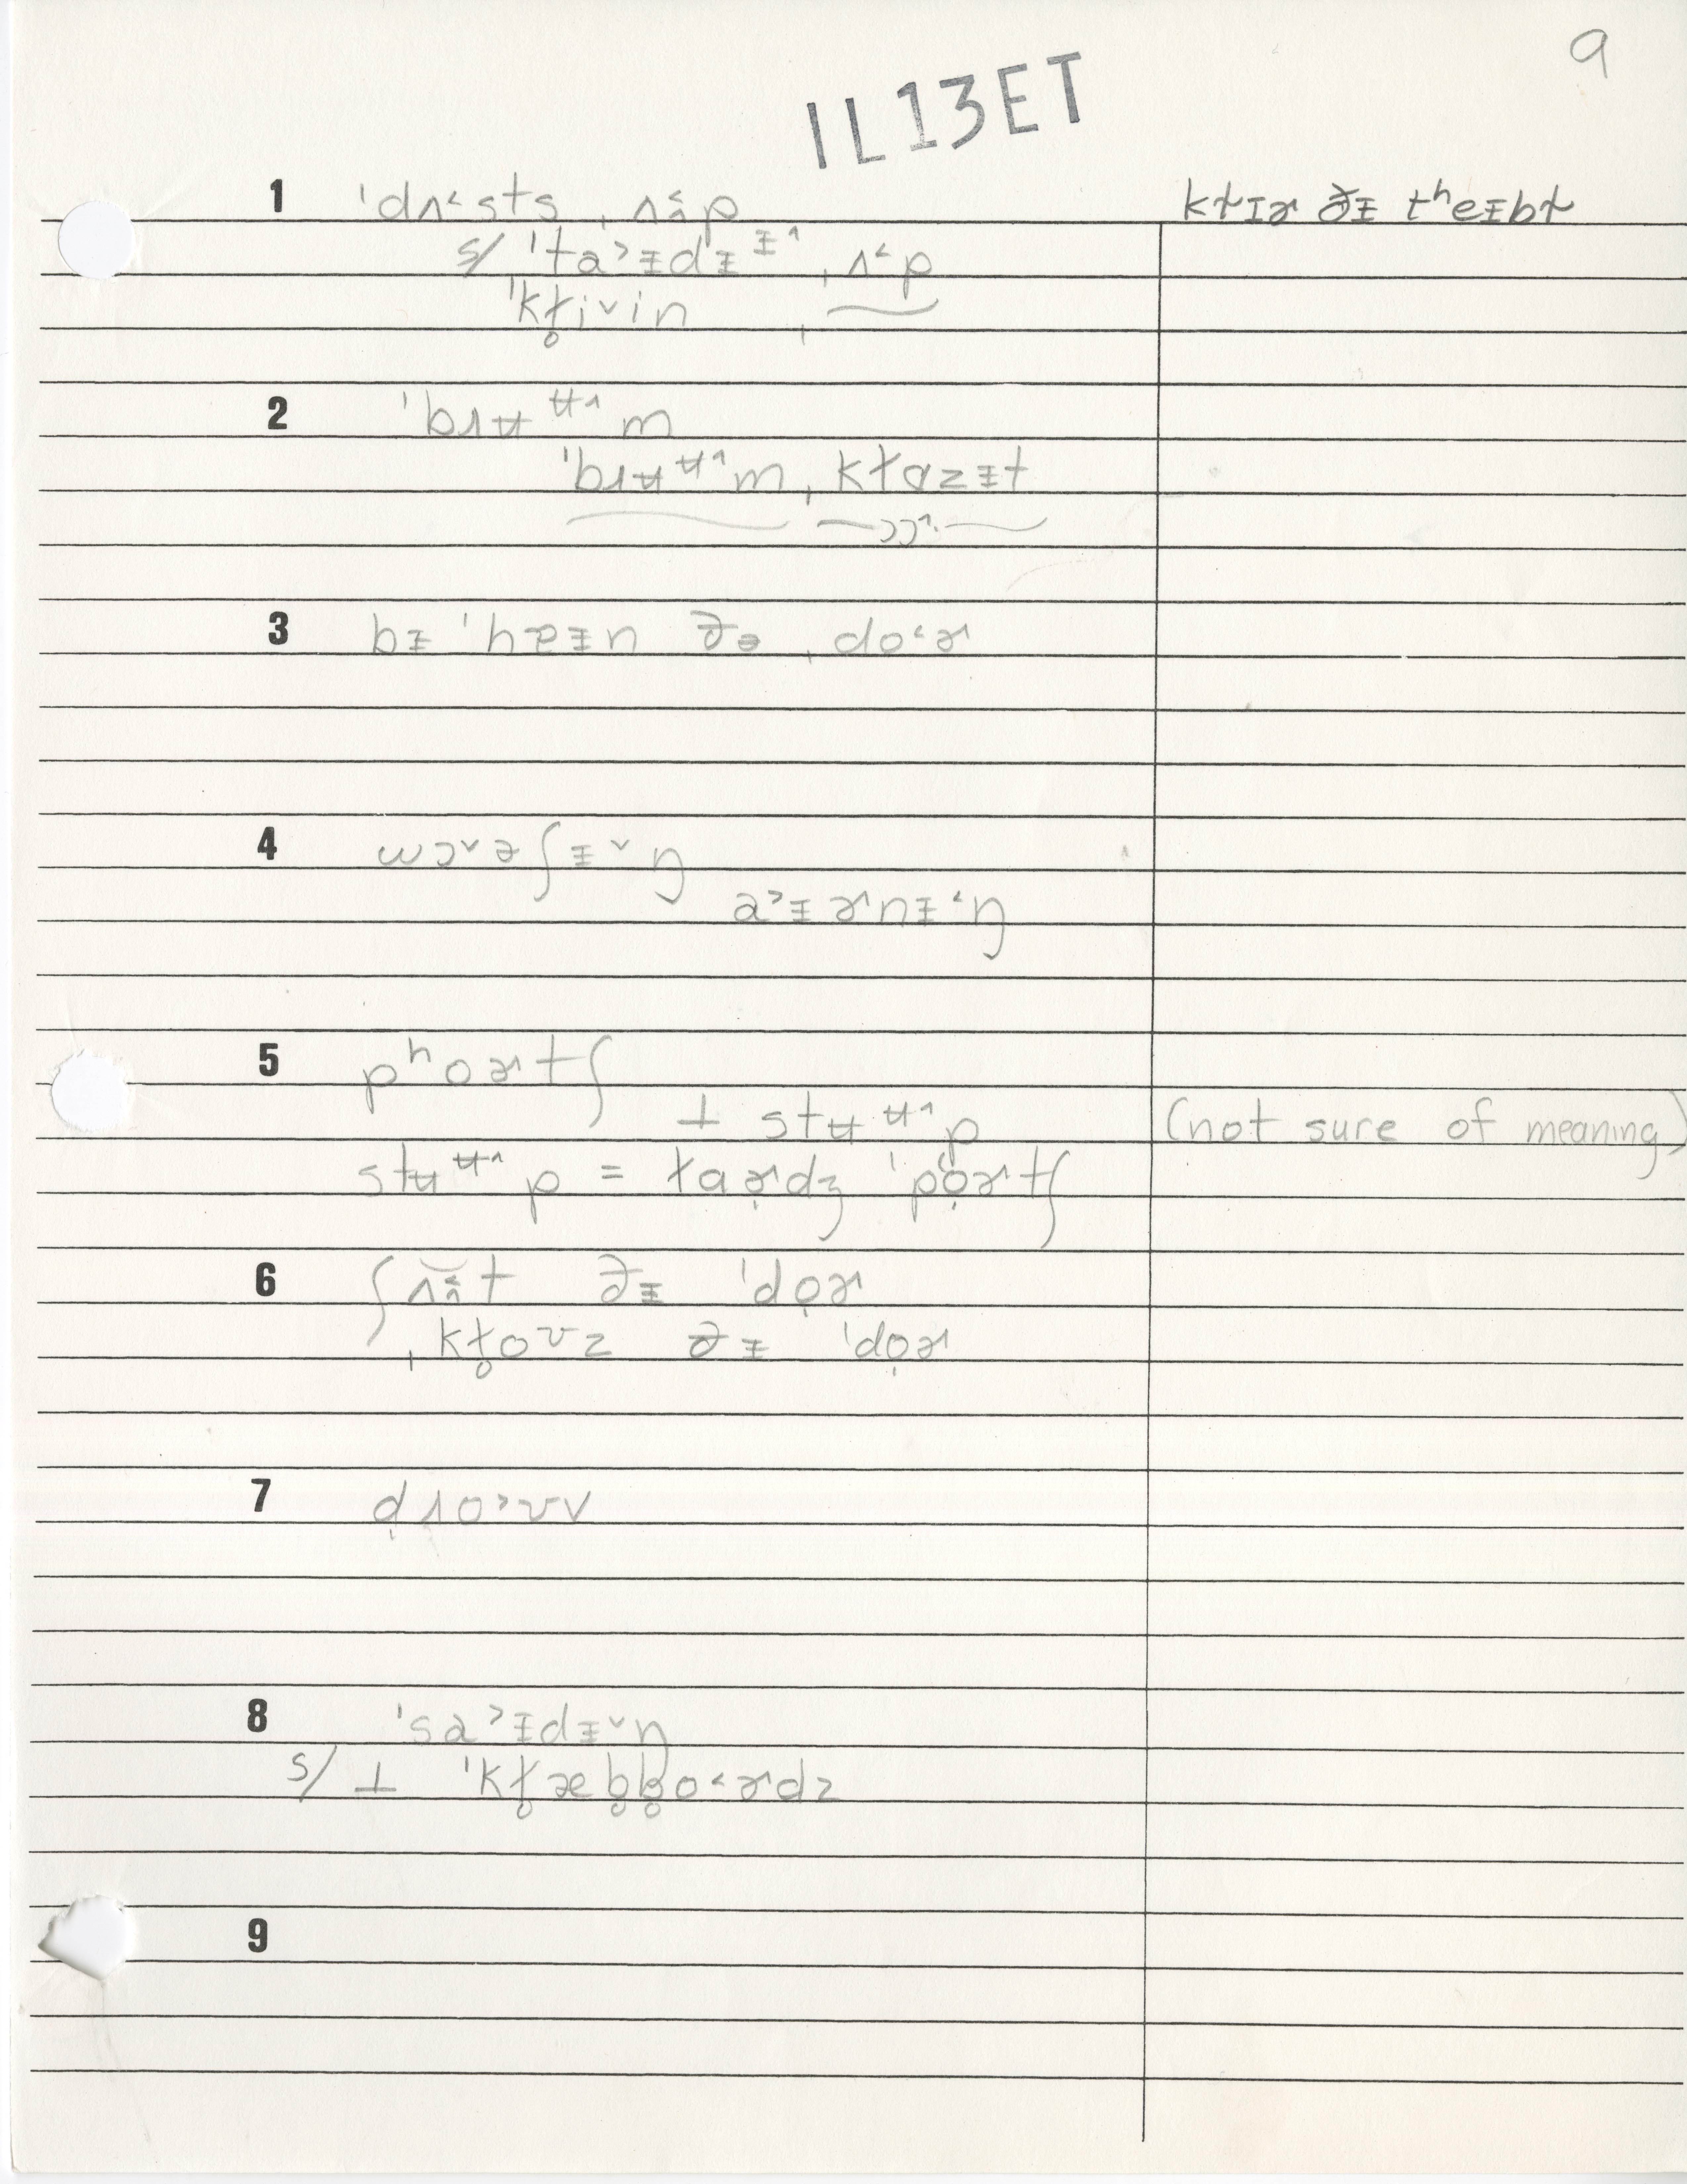 9
IL13ET
1 ˈdʌ˂sts ˌʌ̟̃p kɫɪɚ ðɪ̵ tʰeɪ̵bɫ
s/ ˈta˃ɪ̵dɪ̵ ɪ̵˄ ˌʌ˂p
ˈkɫ̥i˅in ˌ
2 ˈbɹʉ ʉ˄ m
ˈbɹʉ ʉ˄ m ˌkɫɑzɪ̵t
ɔɔ˄
3 bɪ̵ ˈhaɪ̵n ðə ˌdo˂ɚ
4 wɔ˅əʃɪ̵˅ŋ
a˃ɪ̵ɚnɪ̵˂ŋ
5 pʰoɚtʃ
⊥ stʉ ʉ˄ p (not sure of meaning)
stʉ ʉ˄ p = ɫaɚdʒ ˈpọɚtʃ
6 ʃʌ̟̆t ðɪ̵ ˈdọɚ
ˌkɫ̥oʊz ðɪ̵ ˈdọɚ
7 dɹo˃ʊv
8 ˈsa˃ɪ̵dɪ̵˅ŋ
s/ ⊥ ˈkɫ̥æb̥b̥o˂ɚdz
9